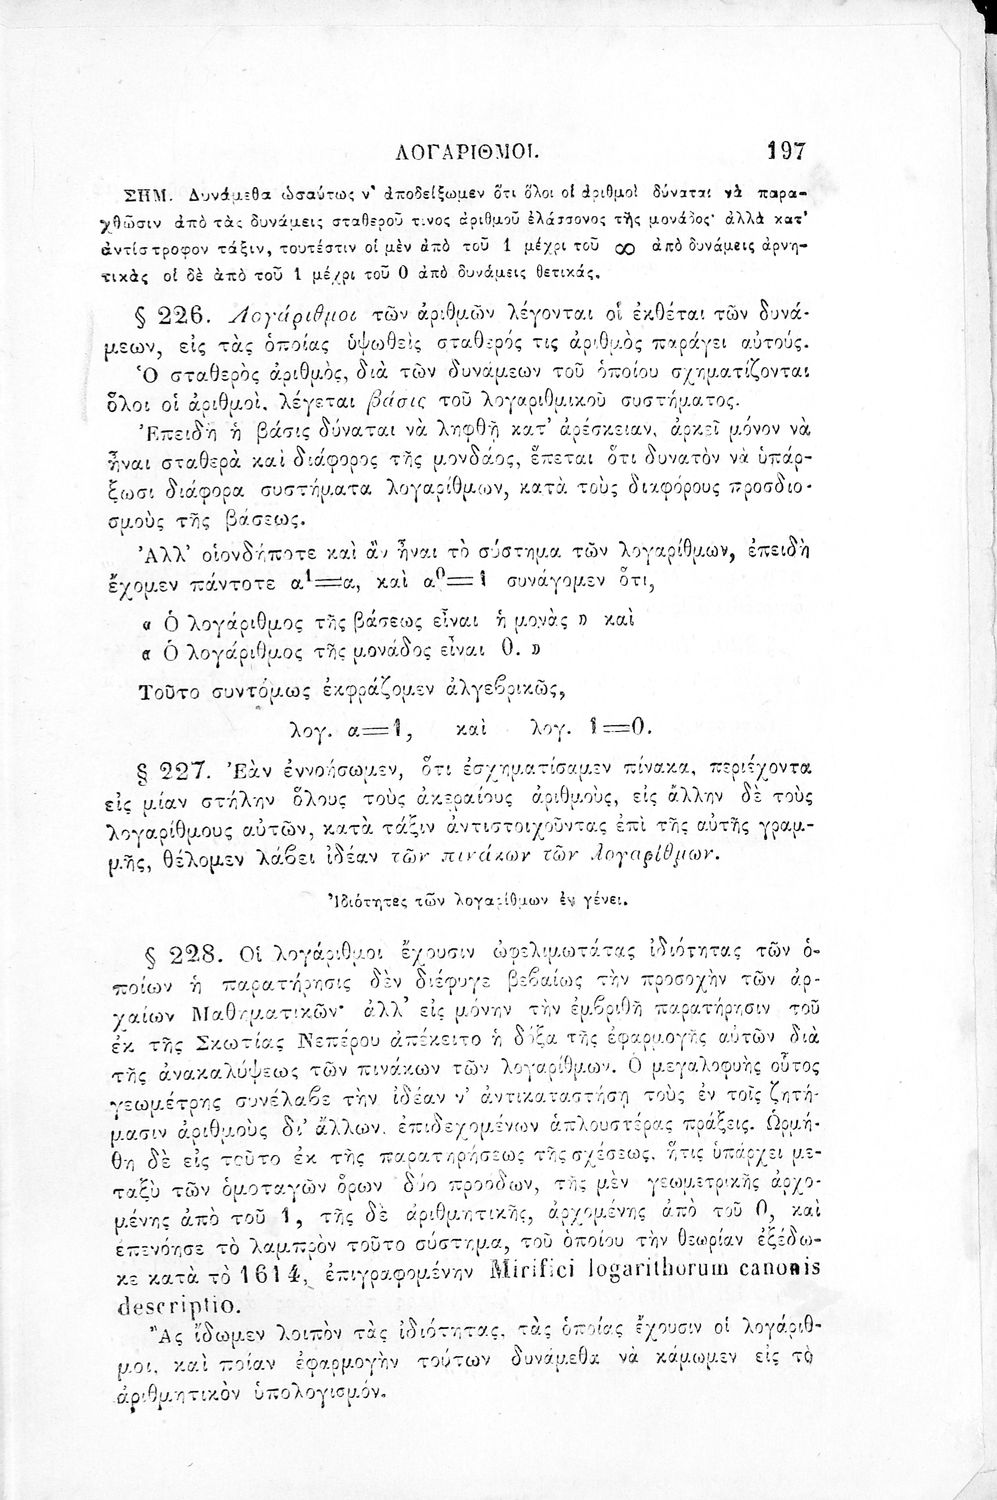 ΛΟΓΑΡΙΘΜΟΙ. 197
ΣΗΜ. Δυνάμεθα ὡσαύτως ν' ἀποδείξωμεν ὅτι ὅλοι οἱ ἀριθμοὶ δύναται νὰ παρα-
χθῶσιν ἀπὸ τὰς δυνάμεις σταθεροῦ τινος ἀριθμοῦ ἐλάσσονος τῆς μονάδος· ἀλλὰ κατ'
ἀντίστροφον τάξιν, τουτέστιν οἱ μὲν ἀπὸ τοῦ 1 μέχρι τοῦ ∞ ἀπὸ δυνάμεις ἀρνη-
τικὰς οἱ δὲ ἀπὸ τοῦ 1 μέχρι τοῦ 0 ἀπὸ δυνάμεις θετικάς.
§ 226. Λογάριθμοι τῶν ἀριθμῶν λέγονται οἱ ἐκθέται τῶν δυνά-
μεων, εἰς τὰς ὁποίας ὑψωθεὶς σταθερός τις ἀριθμὸς παράγει αὐτούς.
Ὁ σταθερὸς ἀριθμὸς, διὰ τῶν δυνάμεων τοῦ ὁποίου σχηματίζονται
ὅλοι οἱ ἀριθμοὶ, λέγεται βάσις τοῦ λογαριθμικοῦ συστήματος.
Ἐπειδὴ ἡ βάσις δύναται νὰ ληφθῇ κατ' ἀρέσκειαν, ἀρκεῖ μόνον νὰ
ἦναι σταθερὰ καὶ διάφορος τῆς μονδάος, ἕπεται ὅτι δυνατὸν νὰ ὑπάρ-
ξωσι διάφορα συστήματα λογαρίθμων, κατὰ τοὺς διαφόρους προσδιο-
σμοὺς τῆς βάσεως.
Ἀλλ' οἱονδήποτε καὶ ἂν ἦναι τὸ σύστημα τῶν λογαρίθμων, ἐπειδὴ
ἔχομεν πάντοτε α¹=α, καὶ α⁰=1 συνάγομεν ὅτι,
« Ὁ λογάριθμος τῆς βάσεως εἶναι ἡ μονὰς » καὶ
« Ὁ λογάριθμος τῆς μονάδος εἶναι 0. »
Τοῦτο συντόμως ἐκφράζομεν ἀλγεβρικῶς,
λογ. α=1, καὶ λογ. 1=0.
§ 227. Ἐὰν ἐννοήσωμεν, ὅτι ἐσχηματίσαμεν πίνακα, περιέχοντα
εἰς μίαν στήλην ὅλους τοὺς ἀκεραίους ἀριθμοὺς, εἰς ἄλλην δὲ τοὺς
λογαρίθμους αὐτῶν, κατὰ τάξιν ἀντιστοιχοῦντας ἐπὶ τῆς αὐτῆς γραμ-
μῆς, θέλομεν λάβει ἰδέαν τῶν πινάκων τῶν λογαρίθμων.
Ἰδιότητες τῶν λογαρίθμων ἐν γένει.
§ 228. Οἱ λογάριθμοι ἔχουσιν ὠφελιμωτάτας ἰδιότητας τῶν ὁ-
ποίων ἡ παρατήρησις δὲν διέφυγε βεβαίως τὴν προσοχὴν τῶν ἀρ-
χαίων Μαθηματικῶν· ἀλλ' εἰς μόνην τὴν ἐμβριθῆ παρατήρησιν τοῦ
ἐκ τῆς Σκωτίας Νεπέρου ἀπέκειτο ἡ δόξα τῆς ἐφαρμογῆς αὐτῶν διὰ
τῆς ἀνακαλύψεως τῶν πινάκων τῶν λογαρίθμων. Ὁ μεγαλοφυὴς οὗτος
γεωμέτρης συνέλαβε τὴν ἰδέαν ν' ἀντικαταστήσῃ τοὺς ἐν τοῖς ζητή-
μασιν ἀριθμοὺς δι' ἄλλων, ἐπιδεχομένων ἁπλουστέρας πράξεις. Ὡρμή-
θη δὲ εἰς τοῦτο ἐκ τῆς παρατηρήσεως τῆς σχέσεως, ἥτις ὑπάρχει με-
ταξὺ τῶν ὁμοταγῶν ὅρων δύο προόδων, τῆς μὲν γεωμετρικῆς ἀρχο-
μένης ἀπὸ τοῦ 1, τῆς δὲ ἀριθμητικῆς, ἀρχομένης ἀπὸ τοῦ 0, καὶ
ἐπενόησε τὸ λαμπρὸν τοῦτο σύστημα, τοῦ ὁποίου τὴν θεωρίαν ἐξέδω-
κε κατὰ τὸ 1614, ἐπιγραφομένην Mirifici logarithorum canonis
descriptio.
Ἂς ἴδωμεν λοιπὸν τὰς ἰδιότητας, τὰς ὁποίας ἔχουσιν οἱ λογάριθ-
μοι, καὶ ποίαν ἐφαρμογὴν τούτων δυνάμεθα νὰ κάμωμεν εἰς τὸ
ἀριθμητικὸν ὑπολογισμόν.